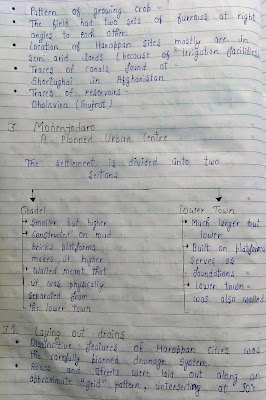 Pattern of growing crop -
The field had two sets of furrows at right
angles to each other.
Location of Harappan sites mostly are in
semi arid lands (because of irrigation facilities)
Traces of canals found at
Shortughai in Afghanistan
Traces of reservoirs -
Dholavira (Gujrat)
3. Mohenjodaro
A Planned Urban Centre
The settlement is divided into two
sections
Citadel
Smaller but higher
Constructed on mud
bricks platforms
makes it higher
Walled meant that
it was physically
separated from
the lower Town
Lower Town
Much larger but
lower
Built on platforms
serves as
foundations
Lower town
was also walled
3.1 Laying out drains
Distinctive features of Harappan Cities was
the carefully planned drainage system.
Roads and streets were laid out along an
approximate "grid" pattern, intersecting at 90°